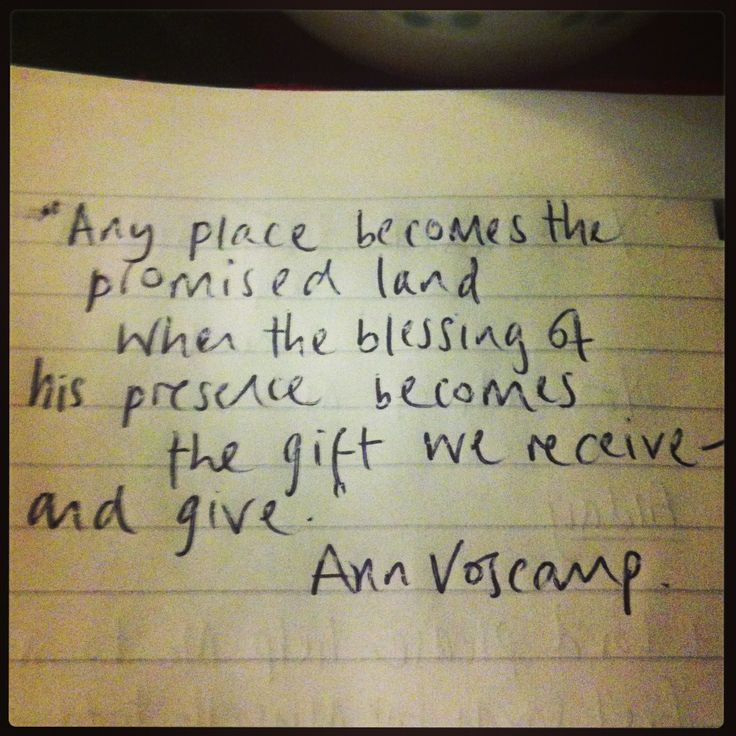 "Any place becomes the
promised land
when the blessing of
his presence becomes
the gift we receive—
and give."
Ann Voscamp.